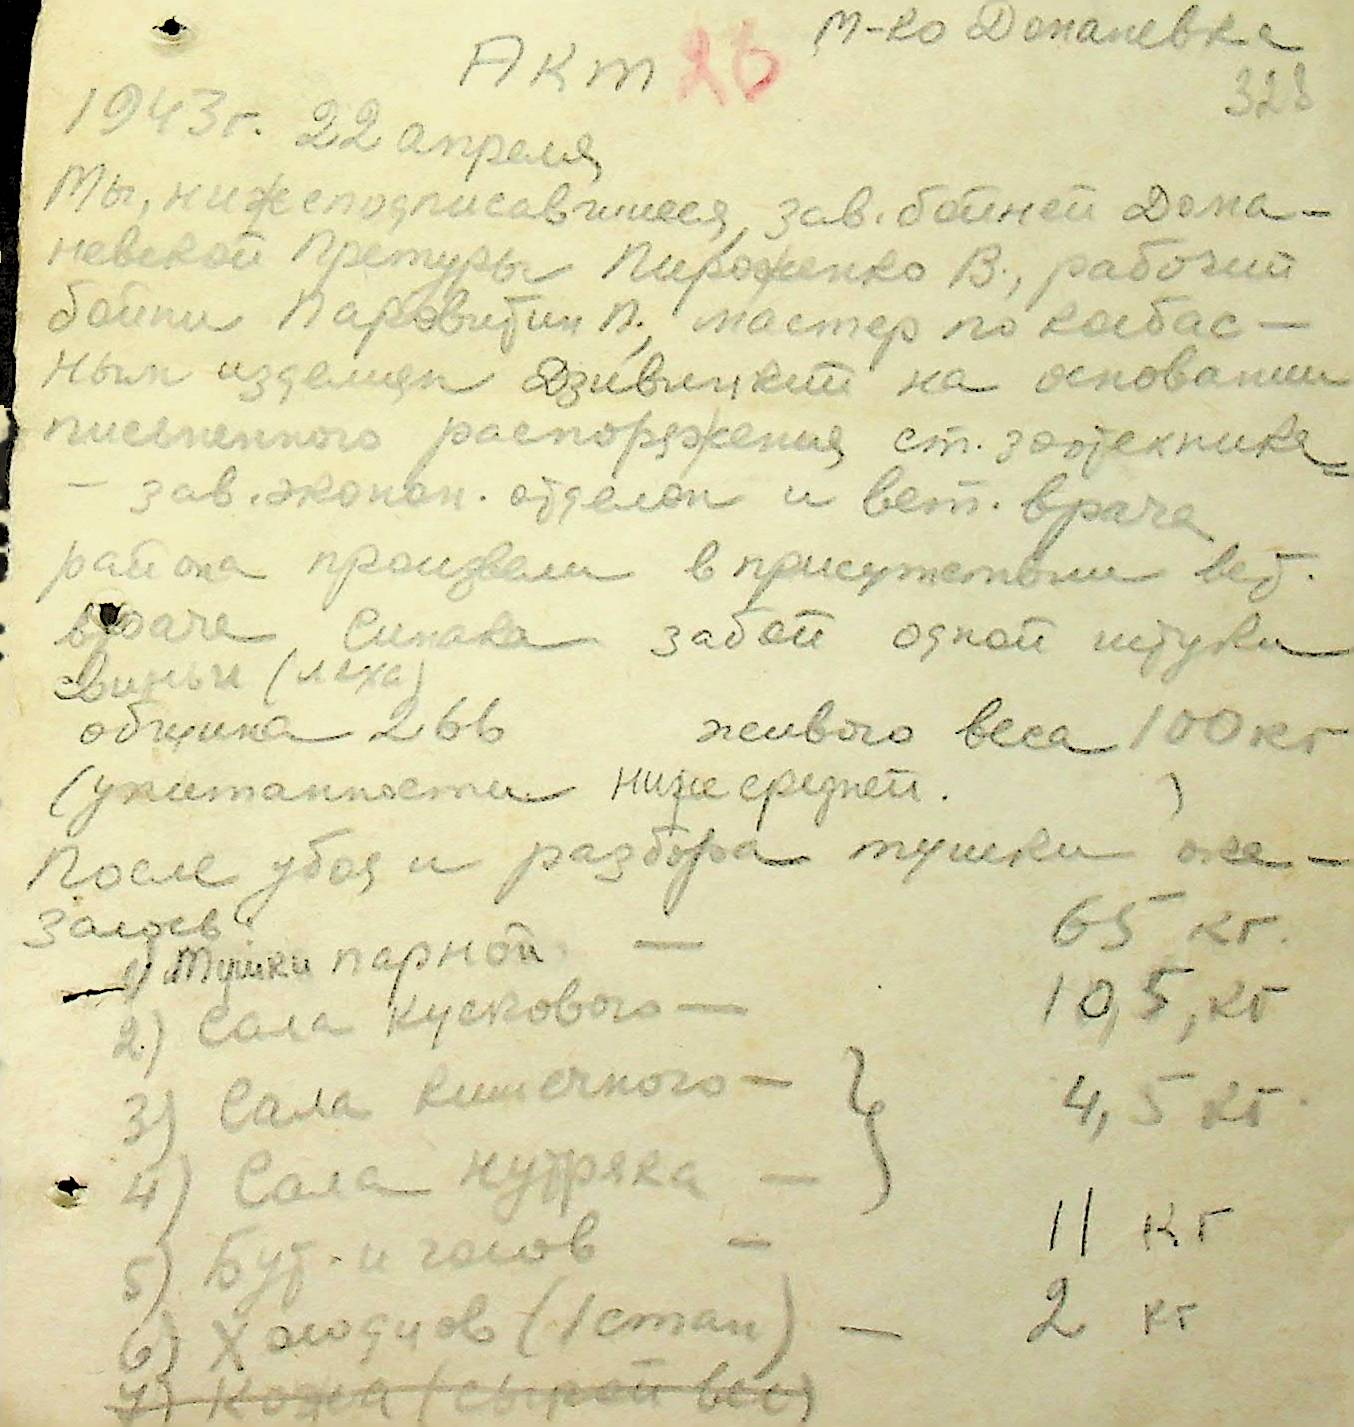 м-ко Доманевка
Акт 23
328
1943 г. 22 апреля
Мы, нижеподписавшиеся, зав. бойней Дома-
невской Претуры Пироженко В., рабочий
бойни П., мастер по колбас-
ным изделиям на основании
письменного распоряжения ст. зоотехника
- зав. эконом. отделом и вет. врача
района произвели в присутствии вет.
врача Симака забой одной штуки
свиньи (леха)
община 266 живого веса 100 кг
(упитанности ниже средней. )
После убоя и разбора тушки ока-
залось
1) Тушки парной. — 65 кг.
2) Сала кускового — 10,5, кг
3) Сала кишечного — } 4,5 кг.
4) Сала нутряка —
5) Бут. и голов — 11 кг
6) Холодцов (1 стап) — 2 кг
7) Кожа (сырой вес)